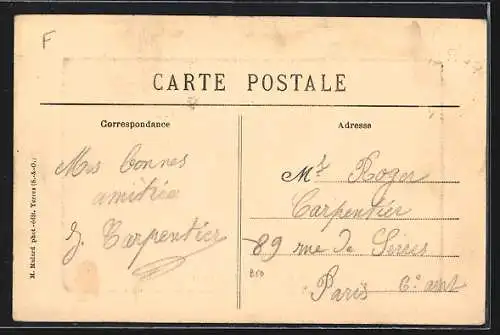 F
CARTE POSTALE
Correspondance
Adresse
Mes bonnes
amitiés
Carpentier
Mr Roger
Carpentier
89 rue de Sèvres
Paris 6e arrt